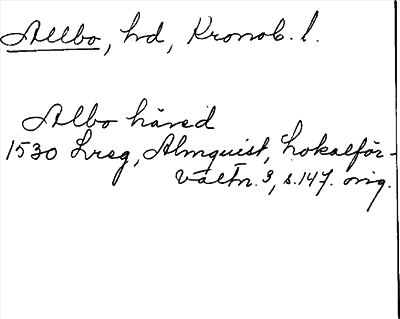 Allbo, hd, Kronob. l.
Albo häred
1530 Lreg, Almquist, Lokalför-
valtn. 3, s. 147. orig.